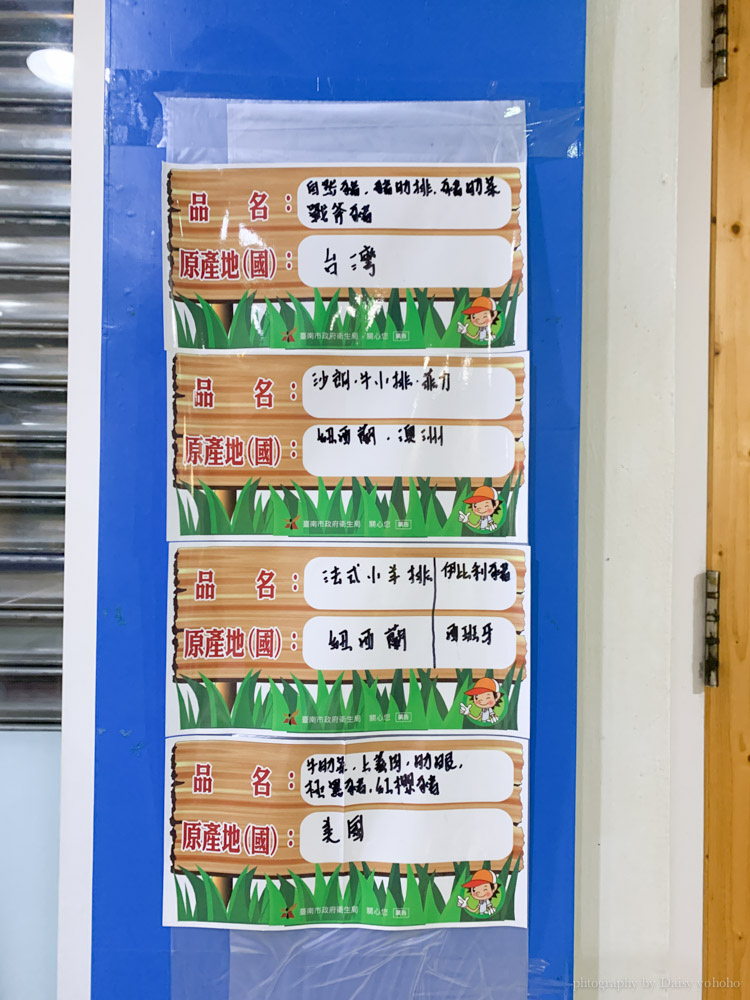 品 名：自然豬．豬肋排．豬肋条
戰斧豬
原產地(國)：台灣
臺南市政府衛生局 關心您 廣告
品 名：沙朗．牛小排．菲力
原產地(國)：紐西蘭．澳洲
臺南市政府衛生局 關心您 廣告
品 名：法式小羊排 伊比利豬
原產地(國)：紐西蘭 西班牙
臺南市政府衛生局 關心您 廣告
品 名：牛肋条．上蓋肉．肋眼．
極黑豬．紅櫻豬
原產地(國)：美國
臺南市政府衛生局 關心您 廣告
phtography by Daisy yohoho